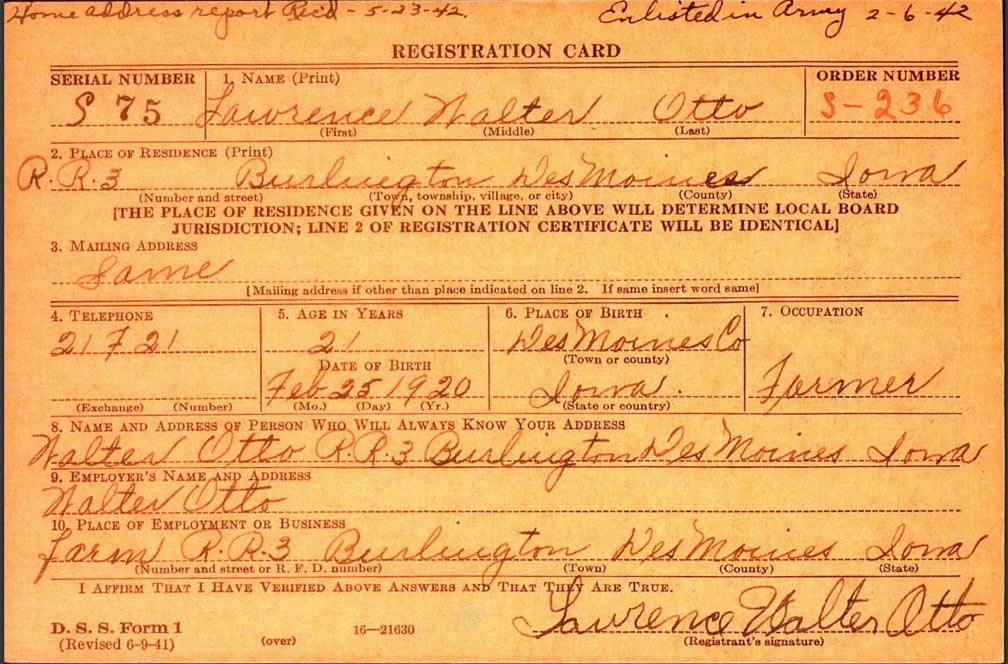 Home address report Rec'd - 5-23-42. Enlisted in Army 2-6-42
REGISTRATION CARD
SERIAL NUMBER 1. NAME (Print) ORDER NUMBER
S 75 Lawrence Walter Otto S-236
(First) (Middle) (Last)
2. PLACE OF RESIDENCE (Print)
R.R.3 Burlington Des Moines Iowa
(Number and street) (Town, township, village, or city) (County) (State)
[THE PLACE OF RESIDENCE GIVEN ON THE LINE ABOVE WILL DETERMINE LOCAL BOARD
JURISDICTION; LINE 2 OF REGISTRATION CERTIFICATE WILL BE IDENTICAL]
3. MAILING ADDRESS
Same
[Mailing address if other than place indicated on line 2. If same insert word same]
4. TELEPHONE 5. AGE IN YEARS 6. PLACE OF BIRTH 7. OCCUPATION
21 F 21 21 Des Moines Co
DATE OF BIRTH (Town or county)
Feb 25 1920 Iowa. Farmer
(Exchange) (Number) (Mo.) (Day) (Yr.) (State or country)
8. NAME AND ADDRESS OF PERSON WHO WILL ALWAYS KNOW YOUR ADDRESS
Walter Otto R.R.3 Burlington Des Moines Iowa
9. EMPLOYER'S NAME AND ADDRESS
Walter Otto
10. PLACE OF EMPLOYMENT OR BUSINESS
farm R.R.3 Burlington Des Moines Iowa
(Number and street or R. F. D. number) (Town) (County) (State)
I AFFIRM THAT I HAVE VERIFIED ABOVE ANSWERS AND THAT THEY ARE TRUE.
Lawrence Walter Otto
D. S. S. Form 1
(Revised 6-9-41) (over) 16—21630 (Registrant's signature)